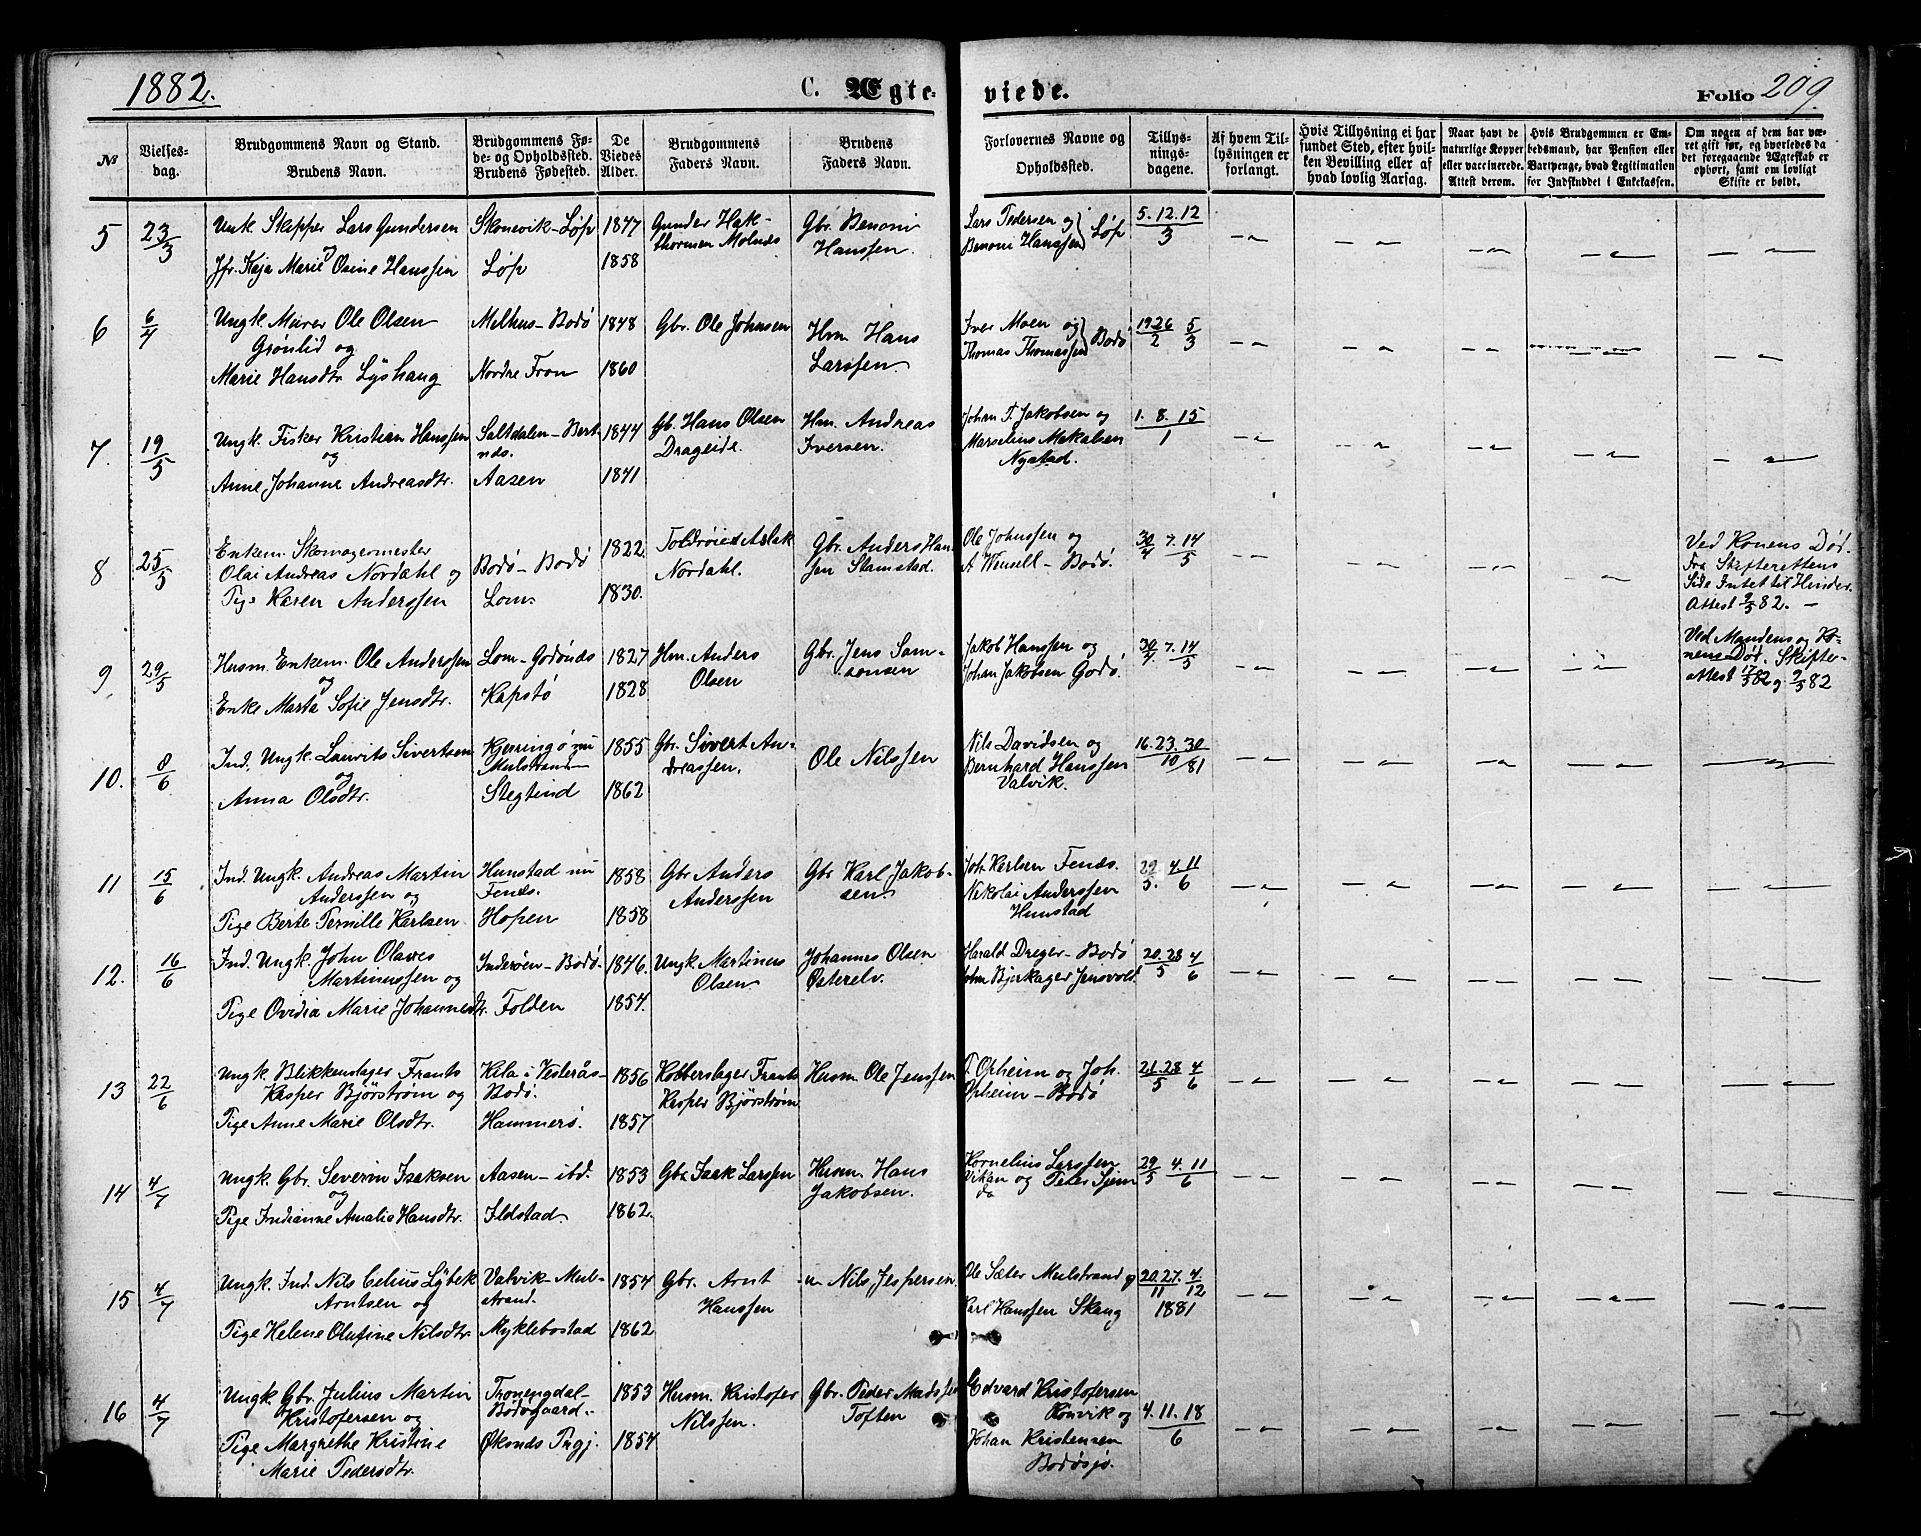 1882.
C. Ægte-
viede.
Folio 209.
No
Vielses-
dag.
Brudgommens Navn og Stand.
Brudens Navn.
Brudgommens Fø-
de- og Opholdssted.
Brudens Fødested.
De
Viedes
Alder.
Brudgommens
Faders Navn.
Brudens
Faders Navn.
Forlovernes Navne og
Opholdssted.
Tillys-
nings-
dagene.
Af hvem Til-
lysningen er
forlangt.
Hvis Tillysning ei har
fundet Sted, efter hvil-
ken Bevilling eller af
hvad lovlig Aarsag.
Naar havt de
naturlige Kopper
eller vaccinerede.
Attest derom.
Hvis Brudgommen er Em-
bedsmand, har Pension eller
Vartpenge, hvad Legitimation
for Indskuddet i Enkekassen.
Om nogen af dem har væ-
ret gift før, og hvorledes da
det foregaaende Ægteskab er
ophørt, samt om lovligt
Skifte er holdt.
5
23/3
Unk Skipper Lars Gundersen
og
Jfr. Kaja Marie Osine Hanssen
Skonevik - Løp
Løp
1847
1858
Gunder Hak-
thormen Molnes
Gbr. Benoni
Hanssen.
Lars Pedersen og
Benoni Hanssen Løp
5. 12. 12
3
6
6/4
Ungk. Murer Ole Olsen
Grønlid og
Marie Hansdtr Lyshaug
Melhus - Bodø
Nordre Fron
1848
1860
Gbr. Ole Johnsen
Hm. Hans
Larssen.
Iver Moen og
Thomas Thomassen Bodø
19.26 5
2 3
7.
19/5
Ungk. Fisker Kristian Hanssen
og
Anne Johanne Andreasdtr.
Saltdalen - Bert-
nds.
Aasen
1844
1841
Gb. Hans Olsen
Drageide.
Hm. Andreas
Iversen.
Johan P. Jakobsen og
Marselius Mikalsen
Nystad.
1. 8. 15
1
8
25/5
Enkem. Skomagermester
Olai Andreas Nordahl og
Pige Karen Anderssen
Bodø - Bodø
Lom.
1822
1830.
Toldrøied Aslak
Nordahl.
Gbr. Anders Han-
sen Slamstad.
Ole Johnssen og
A Wensell - Bodø.
30 7. 14
4 5
Ved Konens Død.
Fra Skifterettens
Side Intet til Hinder.
Attest 9/5 82. -
9.
29/5
Husm. Enkem. Ole Anderssen
og
Enke Marta Sofie Jensdtr.
Lom - Godønds
Kapstø
1827
1828
Hm. Anders
Olsen
Gbr. Jens Sam-
sonsen
Jakob Hanssen og
Johan Jakobsen Godø.
30 7. 14
4 5
Ved Mandens og Ko-
nens Død. Skifte-
attest 17/3 82 og 2/5 82
10.
8/6
Ind. Ungk. Lauvits Sivertsen
og
Anna Olsdtr.
Kjerringø nu
Mulstrand
Stegtind
1855
1862
Gbr. Sivert An-
dreassen.
Ole Nilssen
Nils Davidsen og
Bernhard Hanssen
Valvik.
16. 23. 30
10/81
11
15/6
Ind. Ungk. Andreas Martin
Anderssen og
Pige Berte Pernille Karlsen
Hunstad nu
Fends.
Hopen
1858
1858
Gbr Anders
Anderssen
Gbr Karl Jakob-
sen.
Joh. Karlsen Fends.
Nikolai Anderssen
Hunstad
29 4 11
5. 6
12.
16/6
Ind. Ungk. John Olaves
Martinussen og
Pige Ovidia Marie Johannesdtr.
Inderøen - Bodø.
Folden
1846.
1854.
Ungk Martinus
Olsen
Johannes Olsen
Østerelv.
Harald Dreyer - Bodø
John Bjerkager Jensvold
20.28 4
5 6
13
22/6
Ungk. Blikkenslager Frants
Kasper Björström og
Pige Anne Marie Olsdtr.
Kila i Vesterås -
Bodø.
Hammerø.
1856
1857
Kobberslager Frants
Kasper Björström
Husm Ole Jenssen
P. Opheim og Joh.
Opheim - Bodø
21.28 4
5 6
14
4/7
Ungk. Gbr. Severin Isaksen
og
Pige Indianne Amalia Hansdtr.
Aasen - ibd.
Ildstad.
1853
1862.
Gbr. Isak Larssen
Husm. Hans
Jakobsen.
Kornelius Larssen
Vikan og Peter
do
29 4. 11
5 6
15
4/7
Ungk. Ind. Nils Celius Lybek
Arntsen og
Pige Helene Olufine Nilsdtr.
Valvik - Mul-
strand.
Myklebostad
1854
1862
Gbr. Arnt
Hanssen
-"- Nils Jespersen
Ole Sæter Mulstrand og
Karl Hanssen Skaug
20.27. 4
11 12
1881
16
4/7
Ungk. Gbr. Julius Martin
Kristofersen og
Pige Margrethe Kristine
Marie Pedersdtr.
Tronengdal -
Bodøgaard.
Øksnds Prgj.
1853
1854
Husm. Kristofer
Nilssen.
Gbr. Peder Madssen
Toften
Edvard Kristofersen
Rønvik og
Johan Kristensen
Bodøsjø.
4. 11. 18
6